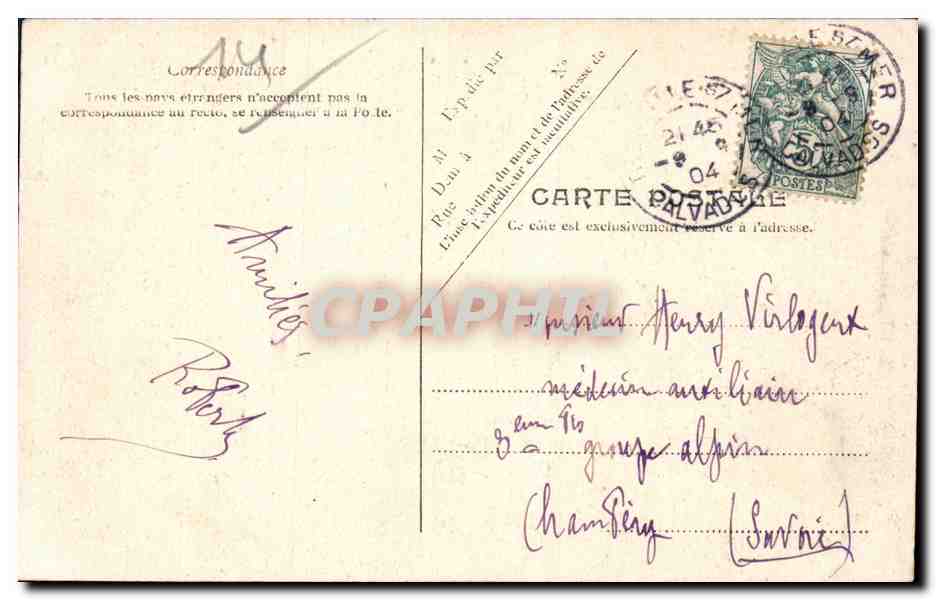 14
Correspondance
Tous les pays étrangers n'acceptent pas la
correspondance au recto, se renseigner à la Poste.
Expédié par
M
Demt à
Rue
No
L'inscription du nom et de l'adresse de
l'expéditeur est facultative.
CARTE POSTALE
Ce côté est exclusivement réservé à l'adresse.
POSTES
21 45
9
04
CALVADOS
ST MER
04
CALVADOS
CPAPHIL
Amitiés,
Robert
Monsieur Henry Virlogeux
médecin auxiliaire
3eme
groupe alpin
Chambéry (Savoie)